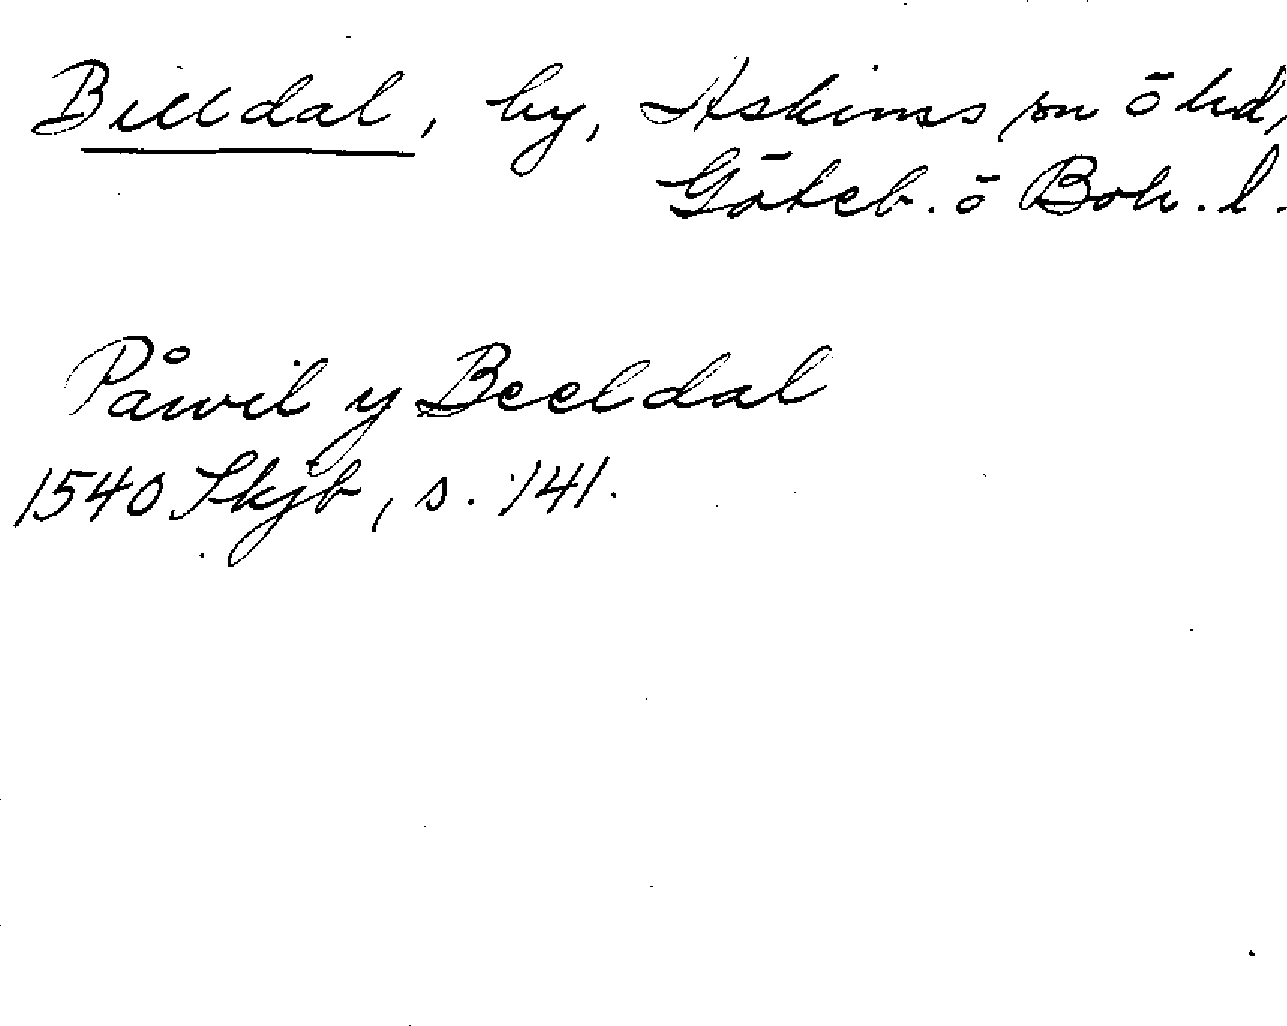 Billdal, by, Askims sn ō hd,
Göteb. ō Boh. l.
Påwil y Beeldal
1540 Skjb, s. 141.